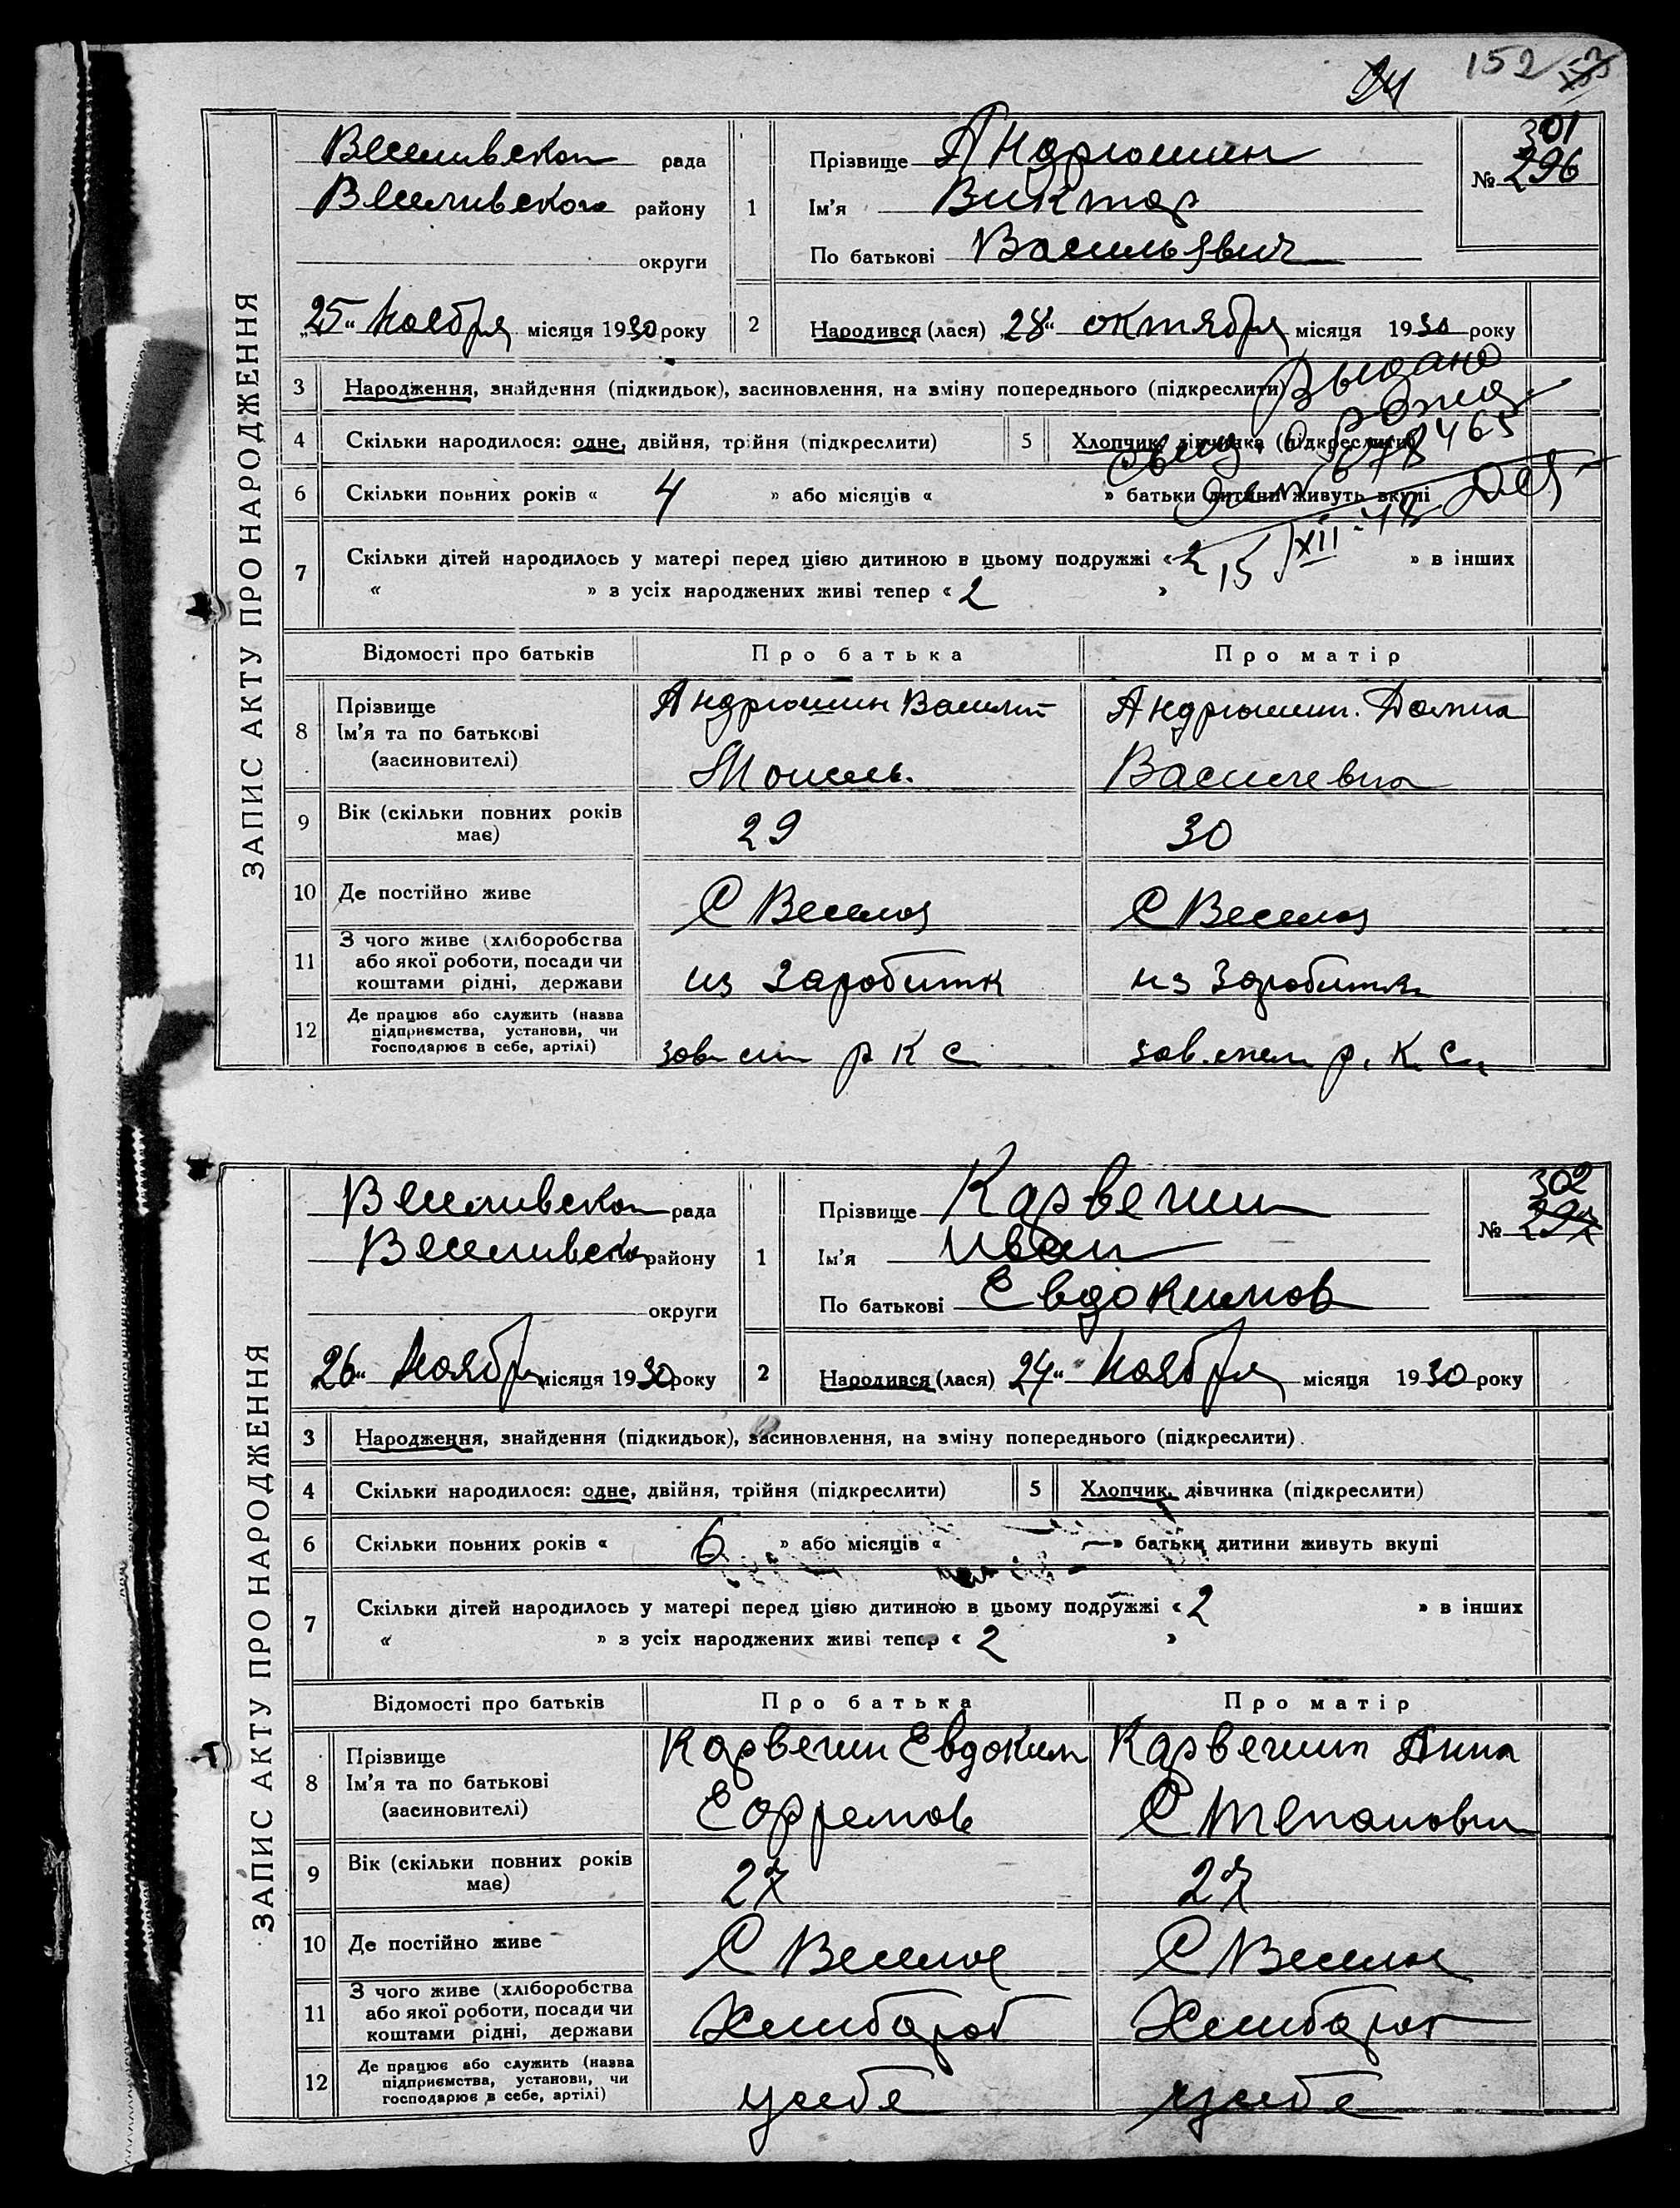 152
ЗАПИС АКТУ ПРО НАРОДЖЕННЯ
Веселивской рада
Веселивского району
округи
„25“ Ноября місяця 1930 року
1
Прізвище Андрюшин
Ім'я Виктор
По батькові Васильевич
301
№ 296
2
Народився (лася) „28“ октября місяця 1930 року
3 Народження, знайдення (підкидьок), засиновлення, на зміну попереднього (підкреслити)
Выдано
4 Скільки народилося: одне, двійня, трійня (підкреслити)
5 Хлопчик, дівчинка (підкреслити)
6 Скільки повних років « 4 » або місяців « » батьки дитини живуть вкупі
15/XII-48
7 Скільки дітей народилось у матері перед цією дитиною в цьому подружжі « 2 » в інших
« » з усіх народжених живі тепер « 2 »
Відомості про батьків Про батька Про матір
8 Прізвище Ім'я та по батькові (засиновителі)
Андрюшин Василий
Моисеев.
Андрюшин. Домна
Василевна
9 Вік (скільки повних років має) 29 30
10 Де постійно живе С Веселое С Веселое
11 З чого живе (хліборобства або якої роботи, посади чи коштами рідні, держави
из Заробитк из Заробитк
12 Де працює або служить (назва підприємства, установи, чи господарює в себе, артілі)
зав р К С зав. р. К. С.
ЗАПИС АКТУ ПРО НАРОДЖЕННЯ
Веселивской рада
Веселивско району
округи
„26“ Ноября місяця 1930 року
1
Прізвище Карвечин
Ім'я Иван
По батькові Евдокимов
302
№ 297
2
Народився (лася) „24“ Ноября місяця 1930 року
3 Народження, знайдення (підкидьок), засиновлення, на зміну попереднього (підкреслити).
4 Скільки народилося: одне, двійня, трійня (підкреслити)
5 Хлопчик, дівчинка (підкреслити)
6 Скільки повних років « 6 » або місяців « — » батьки дитини живуть вкупі
7 Скільки дітей народилось у матері перед цією дитиною в цьому подружжі « 2 » в інших
« » з усіх народжених живі тепер « 2 »
Відомості про батьків Про батька Про матір
8 Прізвище Ім'я та по батькові (засиновителі)
Карвечин Евдоким
Ефремов
Карвечин Анна
Степановн
9 Вік (скільки повних років має) 27 27
10 Де постійно живе С Веселое С Веселое
11 З чого живе (хліборобства або якої роботи, посади чи коштами рідні, держави
Хлибороб Хлибороб
12 Де працює або служить (назва підприємства, установи, чи господарює в себе, артілі)
усебе усебе